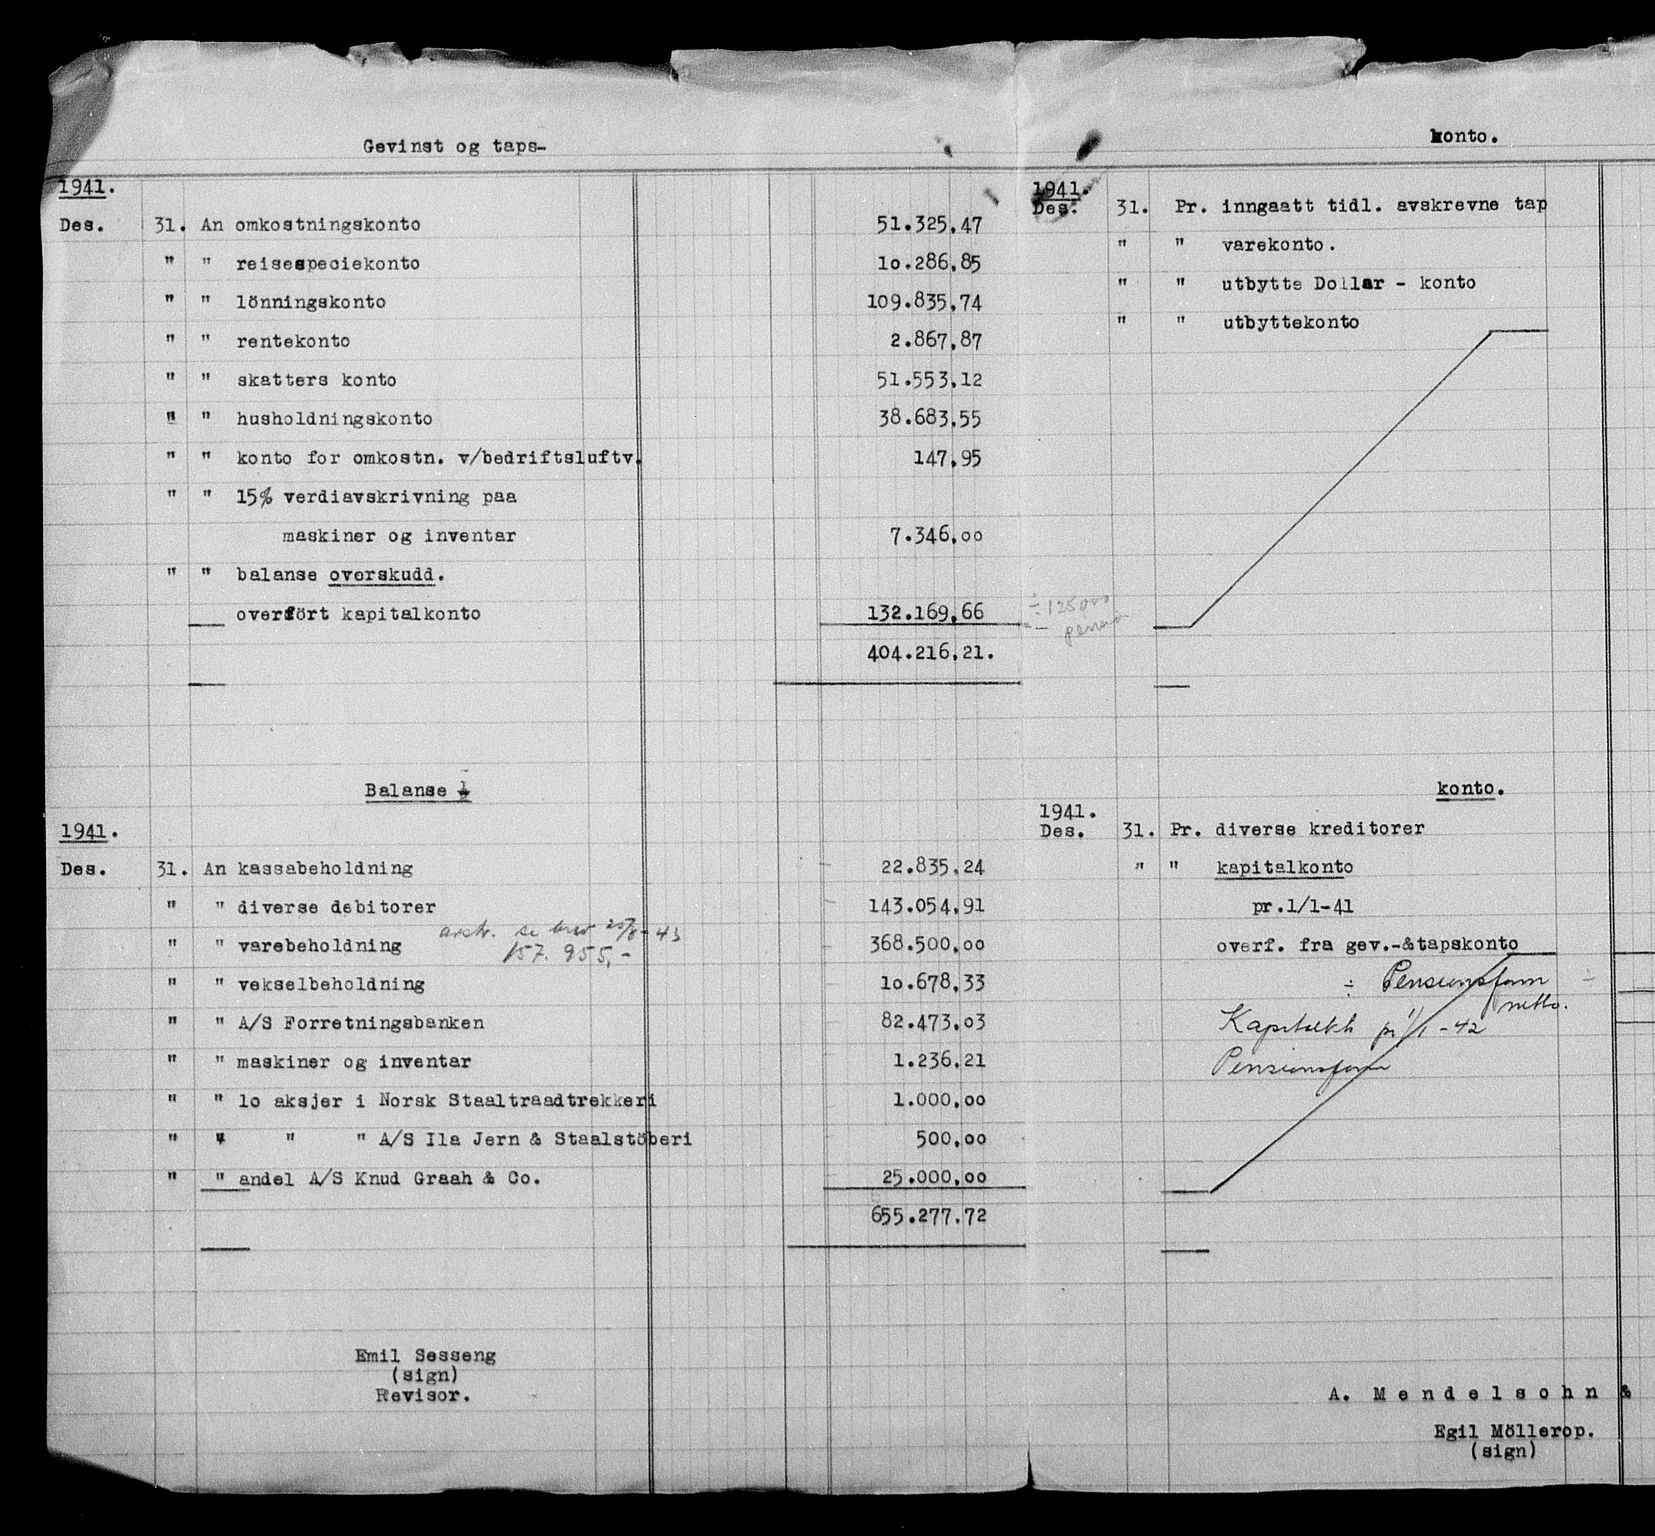 Gevinst og taps-
1941.
Des. 31. An omkostningskonto 51.325,47
" " reisespeciekonto 10.286,85
" " lönningskonto 109.835,74
" " rentekonto 2.867,87
" " skatters konto 51.553,12
" " husholdningskonto 38.683,55
" " konto for omkostn. v/bedriftsluftv. 147,95
" " 15% verdiavskrivning paa
maskiner og inventar 7.346,00
" " balanse overskudd.
overfört kapitalkonto 132.169,66
404.216,21.
konto.
1941.
Des. 31. Pr. inngaatt tidl. avskrevne tap
" " varekonto.
" " utbytte Dollar - konto
" " utbyttekonto
Balanse
1941.
Des. 31. An kassabeholdning 22.835,24
" " diverse debitorer 143.054,91
se brev
" " varebeholdning 368.500,00
157.955,-
" " vekselbeholdning 10.678,33
" " A/S Forretningsbanken 82.473,03
" " maskiner og inventar 1.236,21
" " 10 aksjer i Norsk Staaltraadtrekkeri 1.000,00
" " " " A/S Ila Jern & Staalstöberi 500,00
" " andel A/S Knud Graah & Co. 25.000,00
655.277,72
Emil Sesseng
(sign)
Revisor.
konto.
1941.
Des. 31. Pr. diverse kreditorer
" " kapitalkonto
pr.1/1-41
overf. fra gev.-&tapskonto
÷ Pensionsfonn
netto.
pr 1/1-42
A. Mendelsohn &
Egil Möllerop.
(sign)